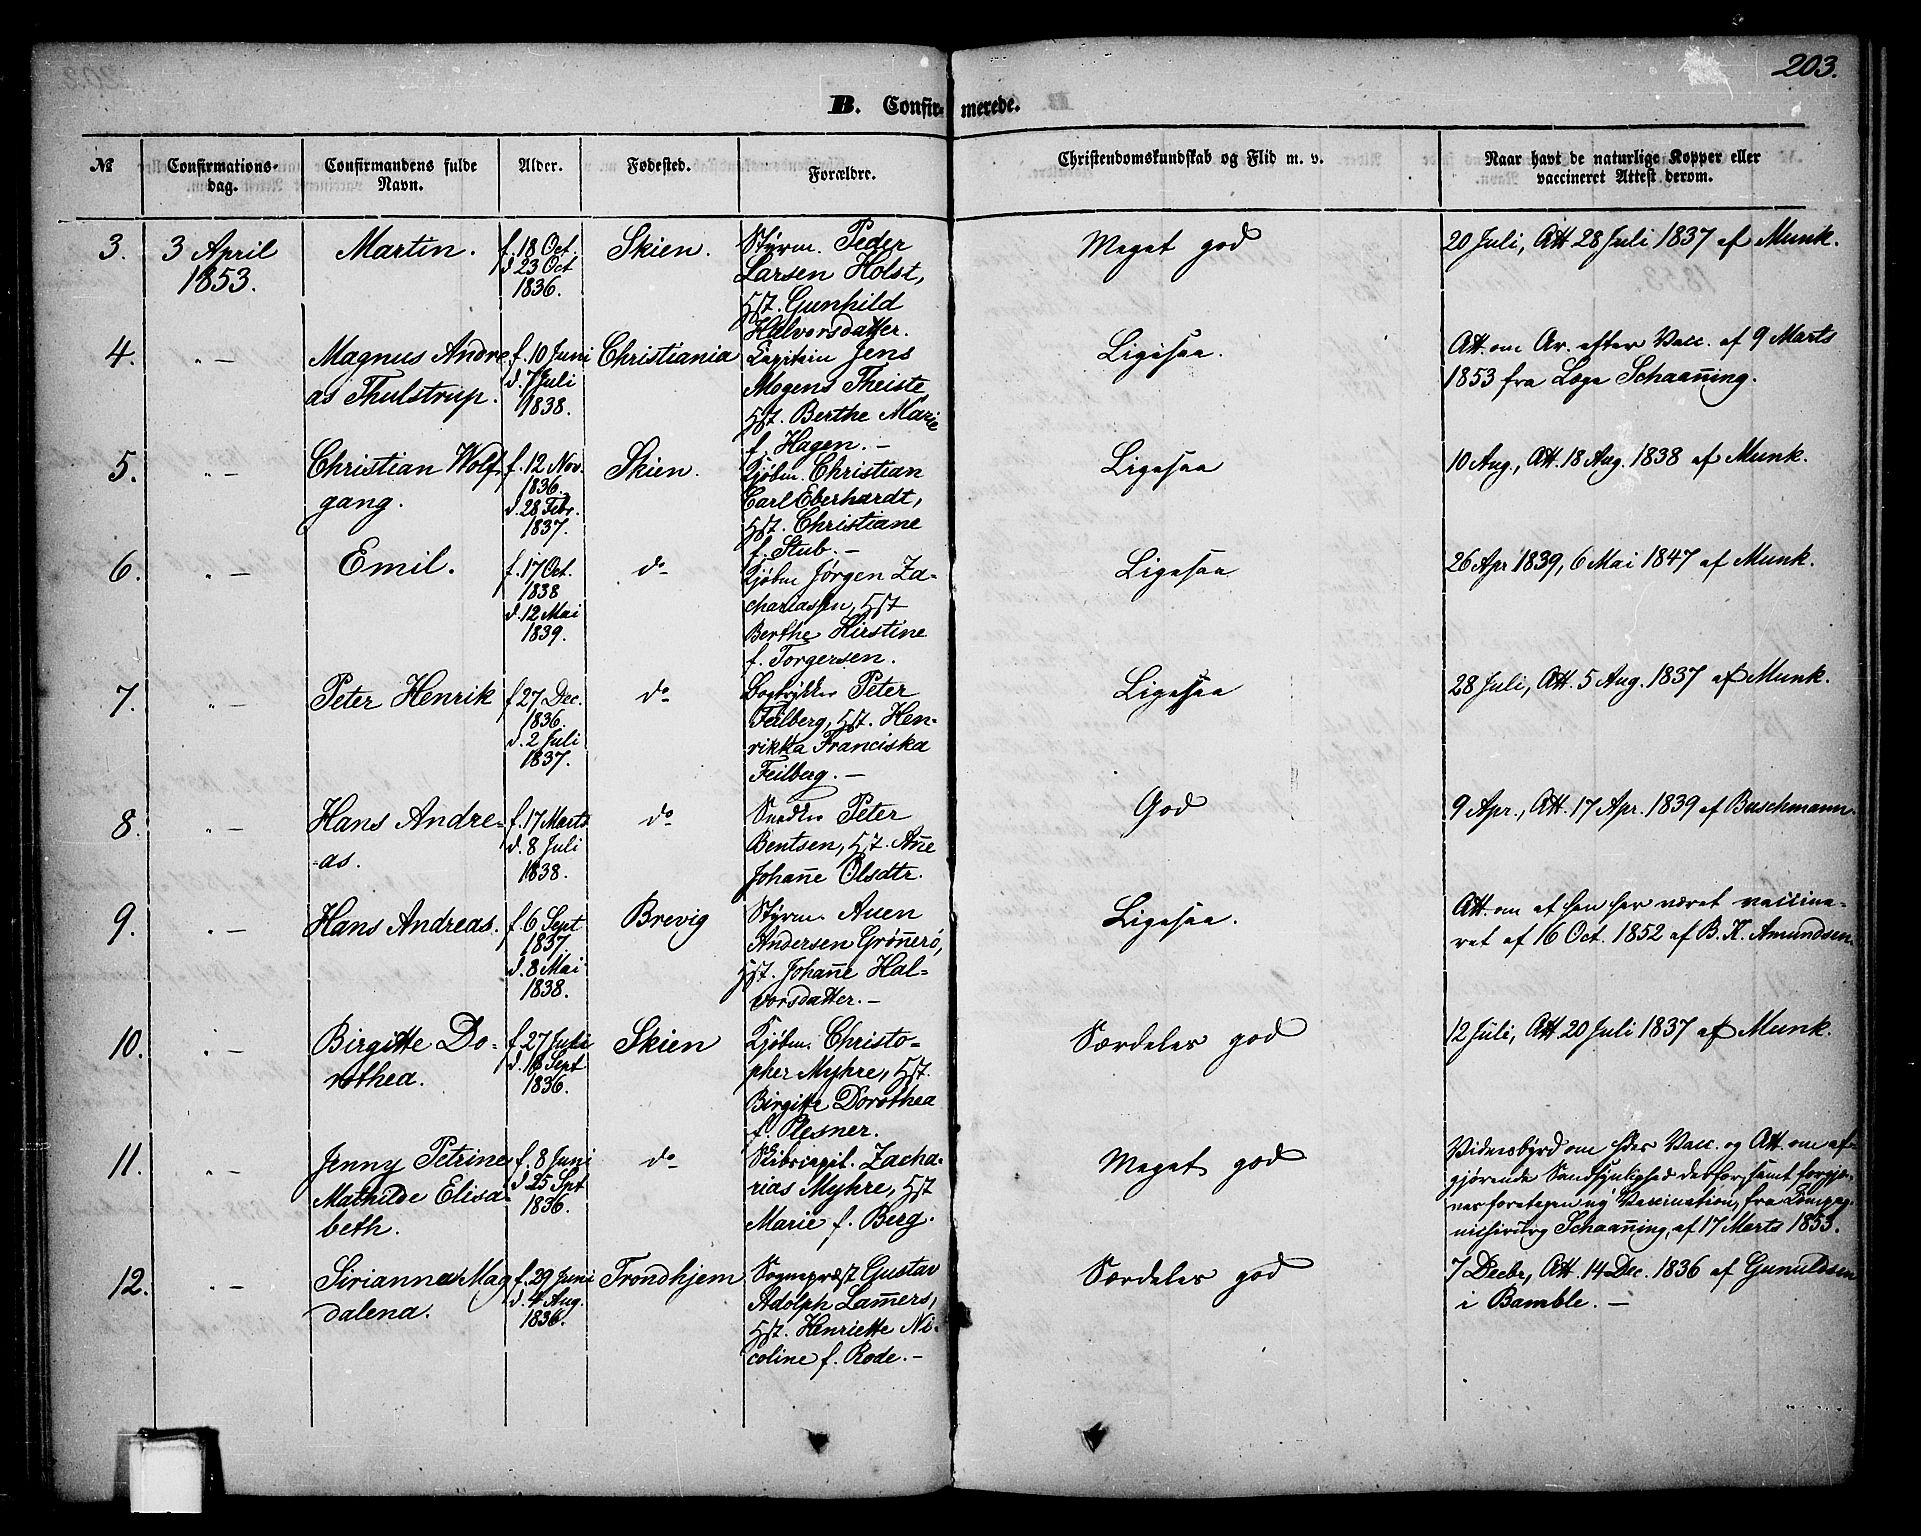 203.
B. Confirmerede.
№ Confirmationsdag. Confirmandens fulde Navn. Alder. Fødested. Forældre. Christendomskundskab og Flid m. v. Naar havt de naturlige Kopper eller vaccineret Attest derom.
3. 3 April 1853. Martin. f. 18 Oct. d. 23 Oct 1836. Skien. Styrm. Peder Larsen Holst, Hst. Gunhild Halvorsdatter. Meget god 20 Juli, Att. 28 Juli 1837 af Munk.
4. " — Magnus Andreas Thulstrup. f. 10 Juni d. 7 Juli 1838. Christiania Capitain Jens Mogens Theiste, Hst. Berthe Marie f. Hagen. — Ligesaa. Att. om Ar. efter Vacc. af 9 Marts 1853 fra Læge Schaanning.
5. " — Christian Wolfgang. f. 12 Nov. 1836. d. 28 Febr. 1837. Skien. Kjøbm. Christian Carl Eberhardt, Hst. Christiane f. Stub. — Ligesaa 10 Aug., Att. 18 Aug. 1838 af Munk.
6. " — Emil. f. 17 Oct. 1838 d. 12 Mai 1839. do Kjøbm Jørgen Zachariassen, Hst Berthe Kirstine f. Torgersen. Ligesaa 26 Apr 1839, 6 Mai 1847 af Munk.
7. " — Peter Henrik f. 27 Dec. 1836. d. 2 Juli 1837. do Bogtrykker Peter Feilberg, Hst. Henrikka Franciska Feilberg. — Ligesaa 28 Juli, Att. 5 Aug. 1837 af Munk.
8. " — Hans Andreas. f. 17 Marts d. 8 Juli 1838. do Snedker Peter Bentsen, Hst. Ane Johane Olsdtr. God 9 Apr., Att. 17 Apr. 1839 af Buschmann.
9. " — Hans Andreas. f. 6 Sept 1837. d. 8 Mai 1838. Brevig Styrm. Auen Andersen Grønerö, Hst. Johane Halvorsdatter. — Ligesaa. Att. om at han har været vaccineret af 16 Oct. 1852 af B. K. Amundsen.
10. " — Birgitte Dorothea. f. 27 Juli d. 18 Sept 1836. Skien Kjøbm. Christopher Myhre, Hst. Birgitte Dorothea f. Plesner. Særdeles god 12 Juli, Att. 20 Juli 1837 af Munk.
11. " — Jenny Petrine Mathilde Elisabeth. f. 8 Juni d. 25 Spt 1836. do Skibscapit. Zacharias Myhre, Hst Marie f. Berg. Meget god Vidnesbyrd om Vacc. og Att. om afgjørende Sandsynlighed derfor, samt forgjæves foretagen ny Vaccination, fra Compagnichirurg Schaanning, af 17 Marts 1853.
12. " — Sirianna Magdalena. f. 29 Juni d. 4 Aug. 1836. Trondhjem Sognepræst Gustav Adolph Lamers, Hst. Henriette Nicoline f. Rode. — Særdeles god 7 Decbr, Att. 14 Dec. 1836 af Gunuldsen i Bamble. —